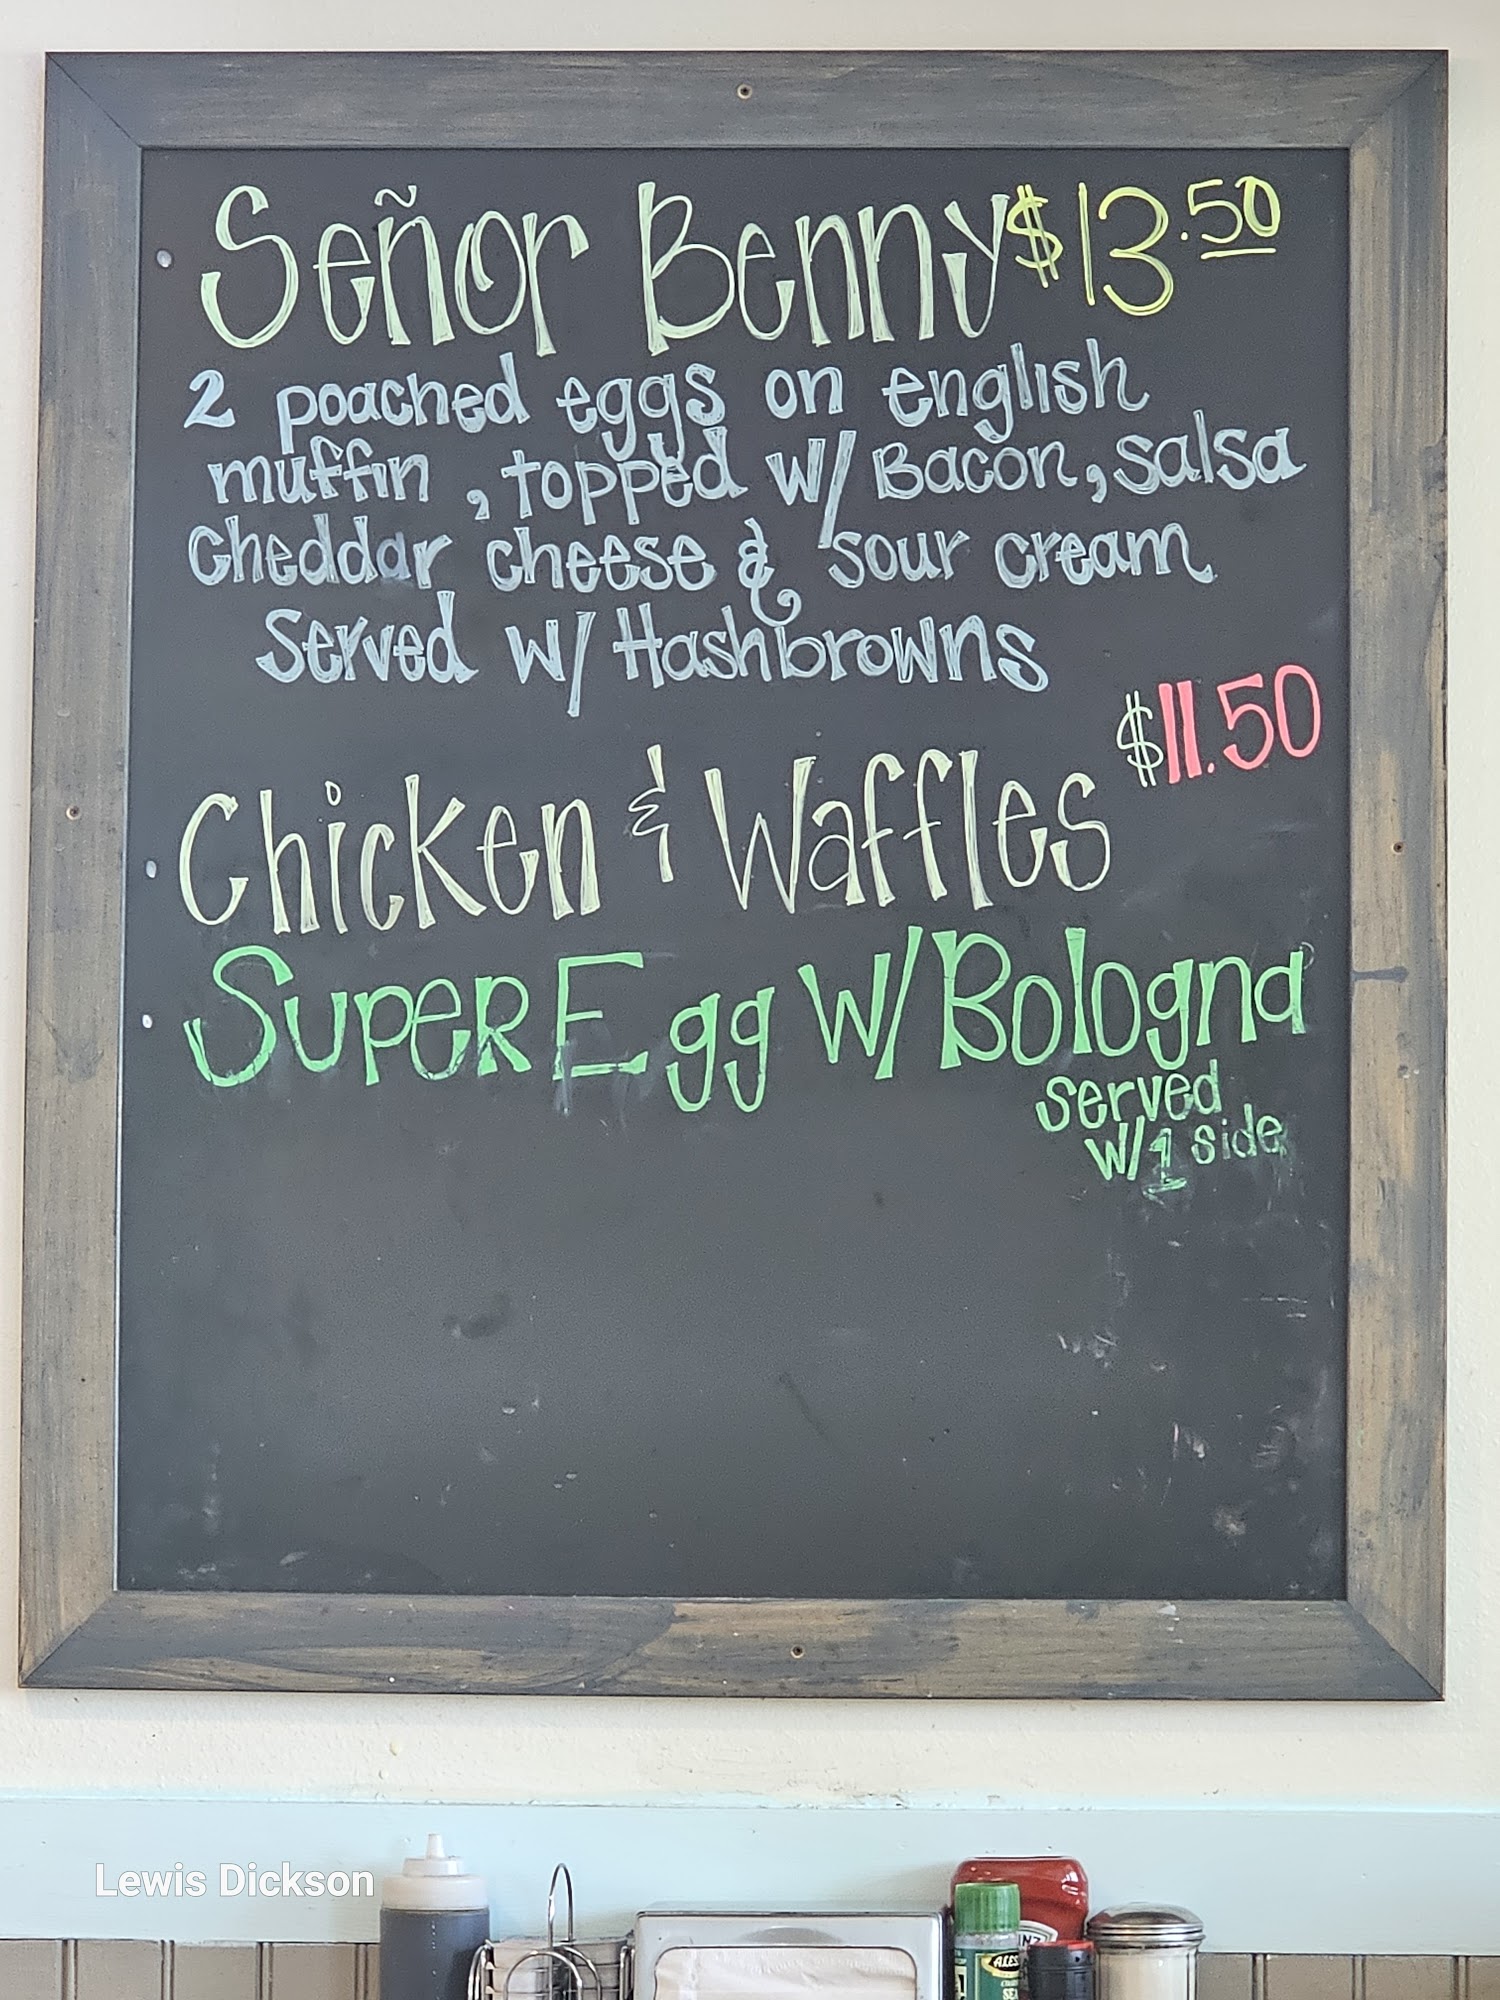 Señor Benny $13.50
2 poached eggs on english
muffin, topped w/ Bacon, salsa
cheddar cheese & sour cream
Served w/ Hashbrowns
$11.50
Chicken & Waffles
Super Egg w/ Bologna
served
w/1 side
Lewis Dickson